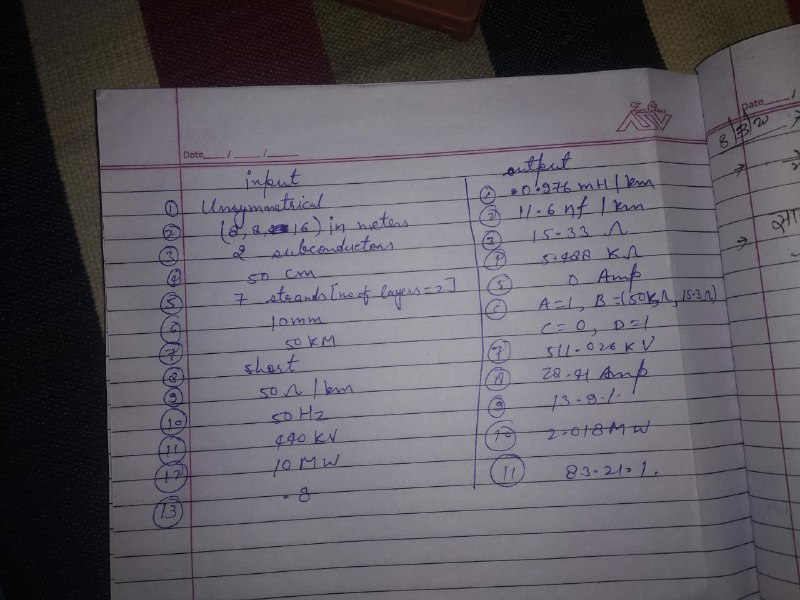 Date / /
input
① Unsymmetrical
② (8, 8, 16) in meters
③ 2 subconductors
④ 50 cm
⑤ 7 strands [no of layers = 2]
⑥ 10mm
⑦ 50 KM
⑧ short
⑨ 50 Ω / km
⑩ 50 Hz
⑪ KV
⑫ 10 MW
⑬ .8
output
① 0.976 mH / km
② 11.6 nf / km
③ 15.33 Ω
④ 5.488 KΩ
⑤ 0 Amp
⑥ A=1, B=(50KΩ, 15.3Ω)
C=0, D=1
⑦ 511.026 KV
⑧ 28.41 Amp
⑨ 13.9 %
⑩ 2.018 MW
⑪ 83.21 %
Date /